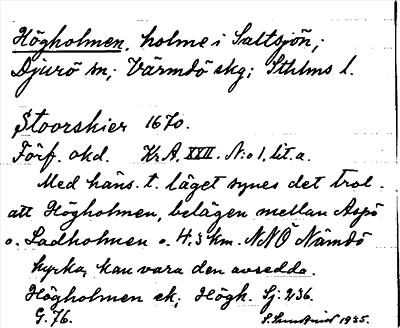 Högholmen, holme i Saltsjön;
Djurö sn; Värmdö skg; Sthlms l.
Stoorskier 1670.
Förf. okd. Kr.A. XXII. N:o 1, lit. a.
Med häns. t. läget synes det trol.
att Högholmen, belägen mellan Aspö
o. Ladholmen o. 4.3 km. NNÖ Nämdö
kyrka, kan vara den avsedda.
Högholmen ek; Högh. Sj. 236.
G. 76. 1935.